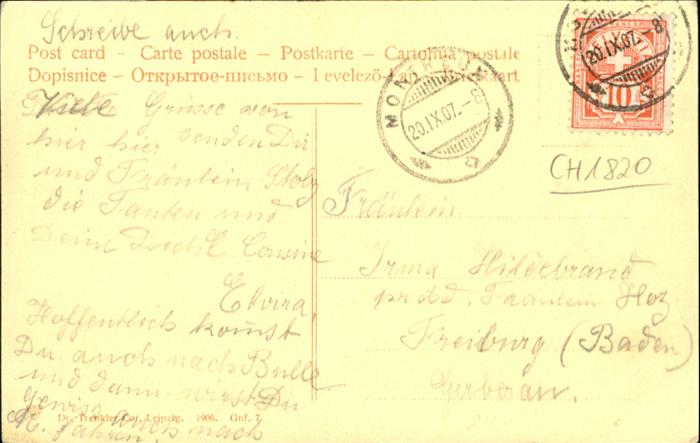 Schreibe auch.
Post card – Carte postale – Postkarte – Cartolina postale
Dopisnice – Открытое-письмо – Levelező-
Viele Grüsse von
hier senden Dir
und Fräulein Stolz
die Tanten und
Deine Cousine
Elvira.
Hoffentlich komst
Du auch nach Bulle
und dann wirst Du
gewiss auch nach
M. fahren.
Dr. Trenkler Co., Leipzig. 1906. Gnf. 7.
MON
20.IX.07.–8
20.IX.07.–8
FRANCO
10
CH1820
Fräulein
Irma Hildebrand
Fräulein
Freiburg (Baden)